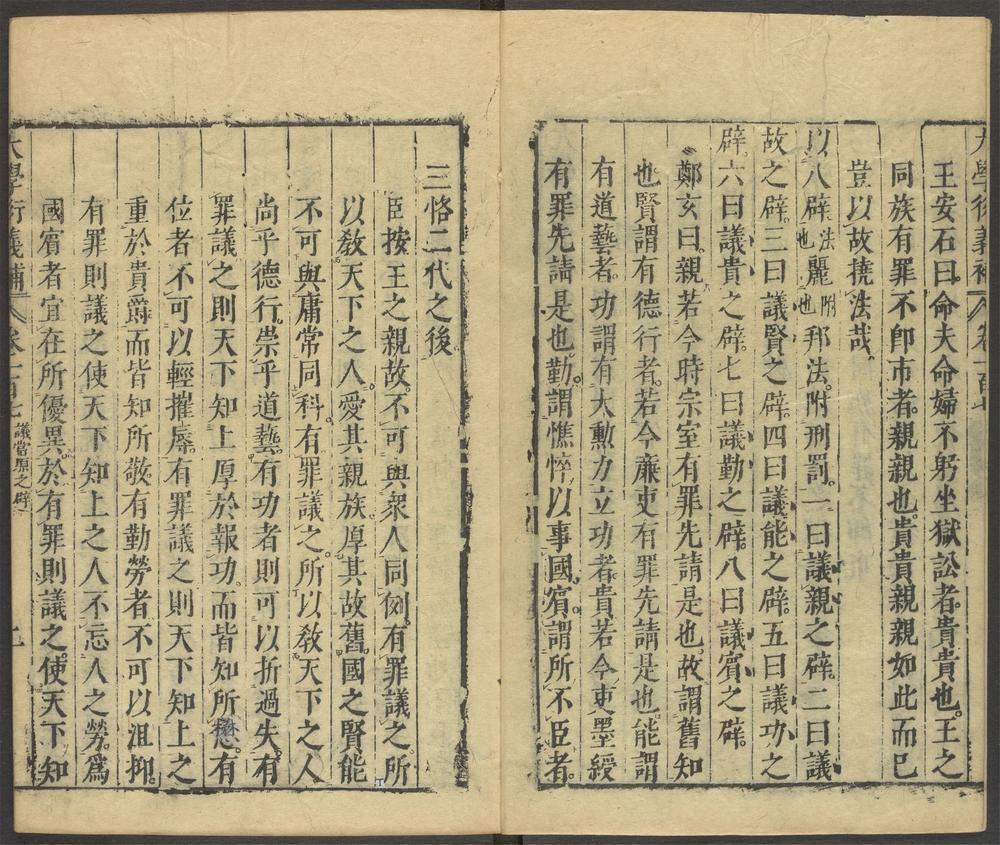 大學衍義補 卷一百七
王安石曰命夫命婦不躬坐獄訟者貴貴也王之
同族有罪不卽市者親親也貴貴親親如此而已
豈以故撓法哉
以八辟法也麗附也邦法附刑罰一曰議親之辟二曰議
故之辟三曰議賢之辟四曰議能之辟五曰議功之
辟六曰議貴之辟七曰議勤之辟八曰議賓之辟
鄭玄曰親若今時宗室有罪先請是也故謂舊知
也賢謂有德行者若今廉吏有罪先請是也能謂
有道藝者功謂有大勳力立功者貴若今吏墨綬
有罪先請是也勤謂憔悴以事國賓謂所不臣者
三恪二代之後
臣按王之親故不可與衆人同例有罪議之所
以敎天下之人愛其親族厚其故舊國之賢能
不可與庸常同科有罪議之所以敎天下之人
尚乎德行崇乎道藝有功者則可以折過失有
罪議之則天下知上厚於報功而皆知所懋有
位者不可以輕摧辱有罪議之則天下知上之
重於貴爵而皆知所敬有勤勞者不可以沮抑
有罪則議之使天下知上之人不忘人之勞爲
國賓者宜在所優異於有罪則議之使天下知
大學衍義補 卷一百七 議當原之辟 七